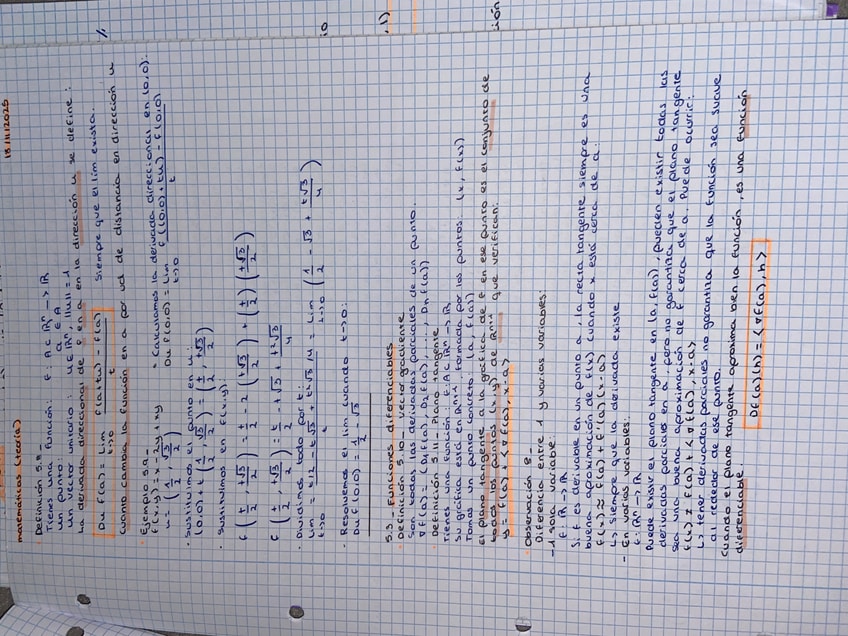 matemáticas (teoría) 18/11/2025
Definición 5.8 -
Tienes una función: f: A ⊂ ℝⁿ → ℝ
un punto: a ∈ A
un vector unitario u ∈ ℝⁿ, ||u|| = 1
La derivada direccional de f en a en la dirección u se define:
Du f(a) = lim t→0 f(a+tu) - f(a) / t siempre que el lím exista.
cuanto cambia la función en a por ud de distancia en dirección u
· Ejemplo 5.9 -
f(x,y) = x - 2y + xy
u = (1/2, √3/2)
· Calculamos la derivada direccional en (0,0):
Du f(0,0) = lim t→0 f((0,0)+tu) - f(0,0) / t
· Sustituimos el punto en u:
(0,0) + t(1/2, √3/2) = (t/2, t√3/2)
· Sustituimos en f(x,y):
f(t/2, t√3/2) = t/2 - 2(t√3/2) + (t/2)(t√3/2)
f(t/2, t√3/2) = t/2 - t√3 + t²√3/4
· Dividimos todo por t:
lim t→0 = t/2 - t√3 + t²√3/4 / t = lim t→0 (1/2 - √3 + t√3/4)
· Resolvemos el lim cuando t→0:
Du f(0,0) = 1/2 - √3
5.3 - Funciones diferenciables
· Definición 5.10 - Vector gradiente
Son todas las derivadas parciales de un punto.
∇f(a) = (D₁f(a), D₂f(a), ..., Dₙf(a))
· Definición 5.11 - Plano tangente
Tienes una función f: A ⊂ ℝⁿ → ℝ
Su gráfica está en ℝⁿ⁺¹, formada por los puntos: (x, f(x))
Tomas un punto concreto: (a, f(a))
El plano tangente a la gráfica de f en ese punto es el conjunto de
todos los puntos (x,y) de ℝⁿ⁺¹ que verifican:
y = f(a) + <∇f(a), x-a>
· Observación 8 -
Diferencia entre 1 y varias variables:
- 1 sola variable
f: ℝ → ℝ
Si f es derivable en un punto a, la recta tangente siempre es una
buena aproximación de f(x) cuando x está cerca de a:
f(x) ≈ f(a) + f'(a)(x-a)
↳ Siempre que la derivada existe
- En varias variables:
f: ℝⁿ → ℝ
Puede existir el plano tangente en (a, f(a)), pueden existir todas las
derivadas parciales en a, pero no garantiza que el plano tangente
sea una buena aproximación de f cerca de a. Puede ocurrir:
f(x) ≠ f(a) + <∇f(a), x-a>
↳ tener derivadas parciales no garantiza que la función sea suave
alrededor de ese punto.
Cuando el plano tangente aproxima bien la función, es una función
diferenciable.
Df(a)(h) = <∇f(a), h>
io
.1)
ión